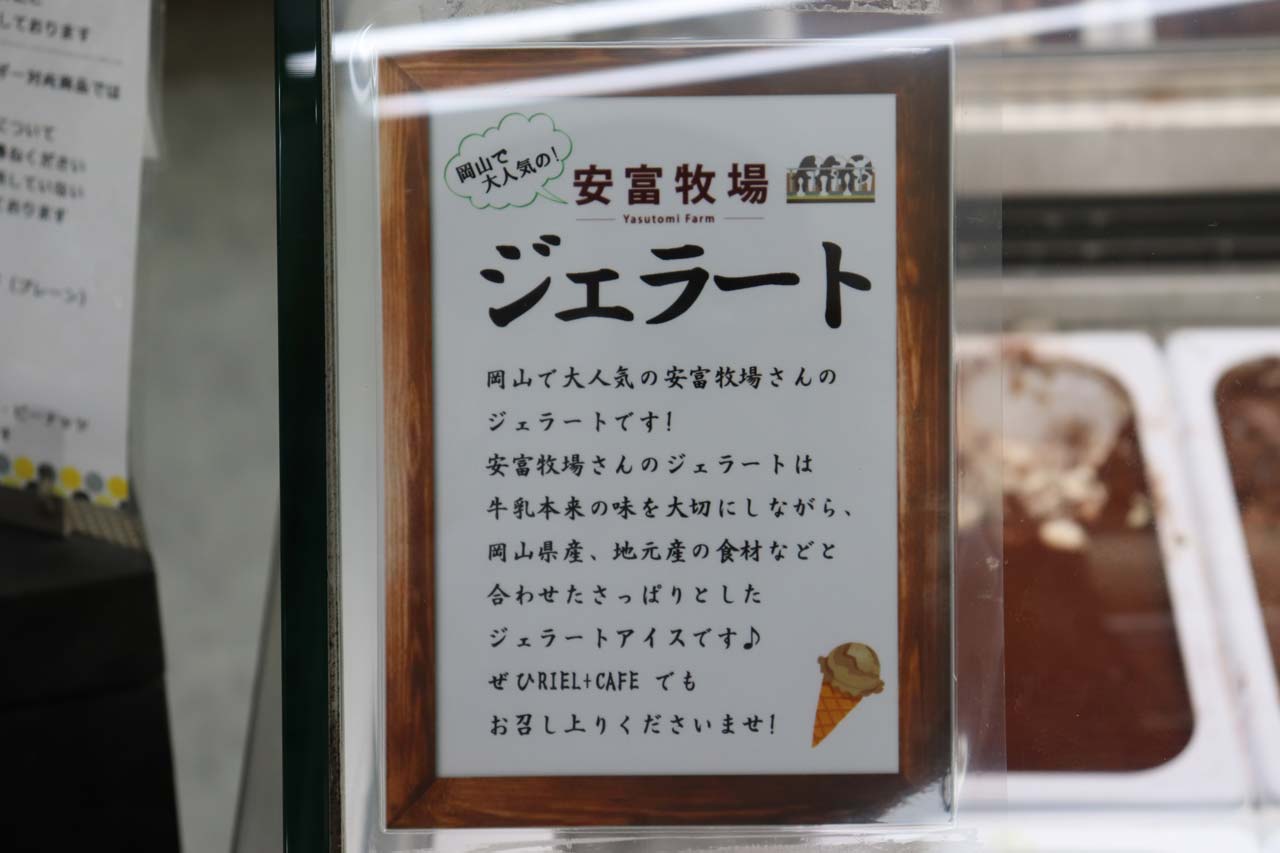 しております
ルギー対応商品では
について
ねください
していない
ております
（プレーン）
・ピーナッツ
岡山で
大人気の！
安富牧場
Yasutomi Farm
ジェラート
岡山で大人気の安富牧場さんの
ジェラートです！
安富牧場さんのジェラートは
牛乳本来の味を大切にしながら、
岡山県産、地元産の食材などと
合わせたさっぱりとした
ジェラートアイスです♪
ぜひRIEL+CAFE でも
お召し上りくださいませ！